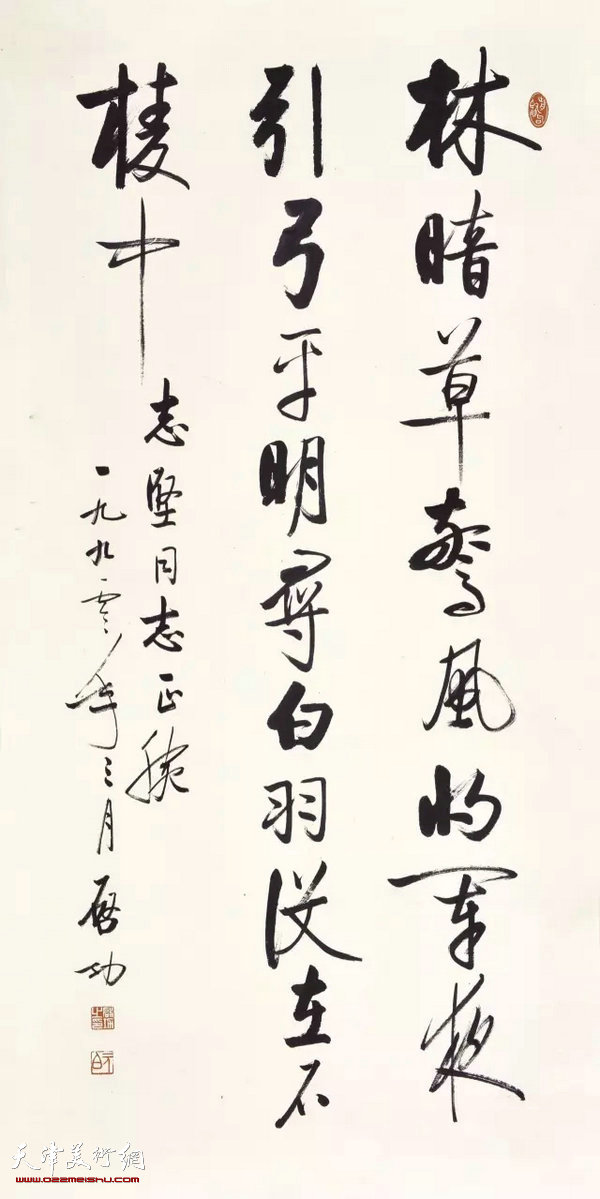 林暗草驚風將軍夜
引弓平明尋白羽没在石
棱中
志堅同志正腕
一九九零年三月 启功
元白
天津美術網
www.022meishu.com